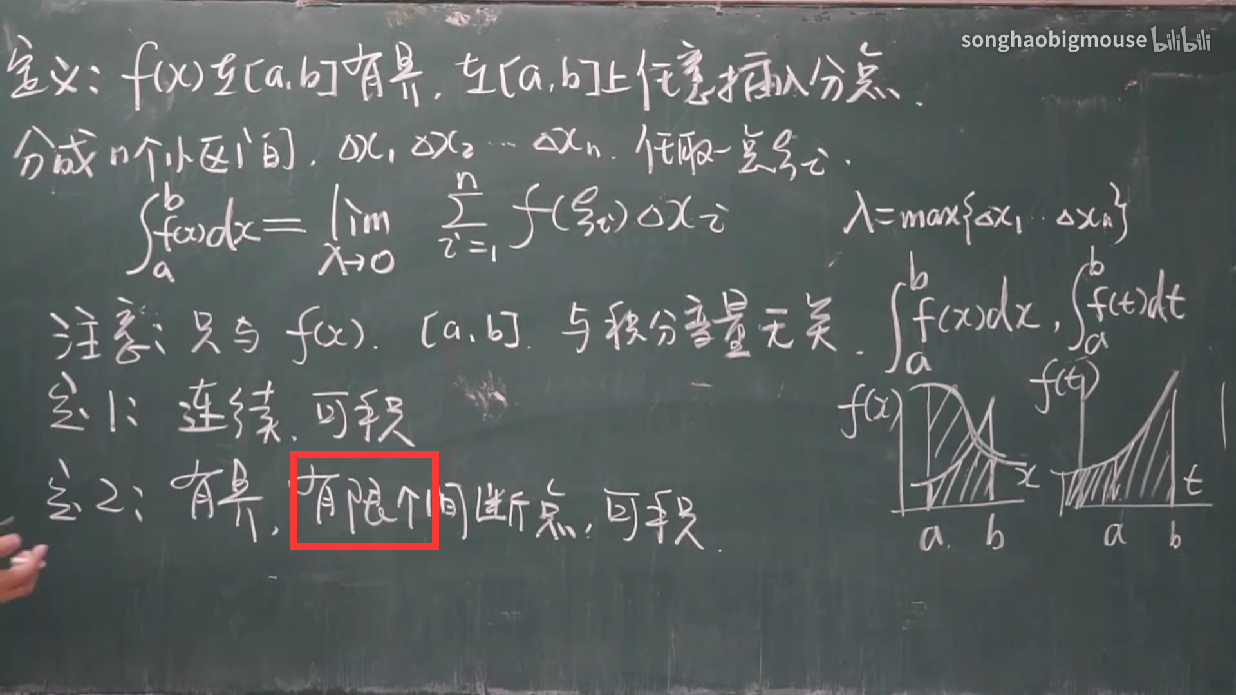 songhaobigmouse bilibili
定义：f(x)在[a,b]有界，在[a,b]上任意插入分点．
分成n个小区间．Δx₁ Δx₂ … Δxₙ．任取一点ξᵢ．
∫ₐᵇf(x)dx = lim_{λ→0} ∑_{i=1}^{n} f(ξᵢ)Δxᵢ
λ=max{Δx₁ … Δxₙ}
注意：只与 f(x)．[a,b]．与积分变量无关．
∫ₐᵇf(x)dx，∫ₐᵇf(t)dt
定1：连续．可积
定2：有界，有限个间断点，可积．
f(x) x a b
f(t) t a b